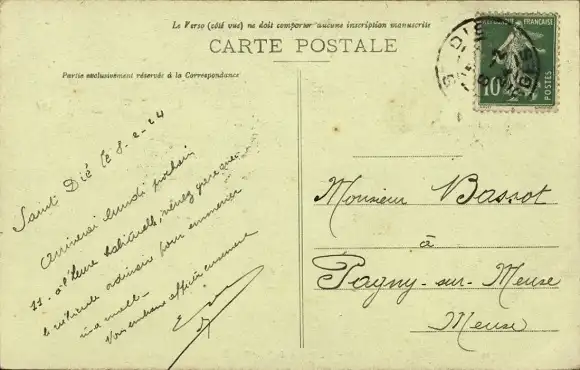 Le Verso (côté vue) ne doit comporter aucune inscription manuscrite
CARTE POSTALE
Partie exclusivement réservée à la Correspondance
RÉPUBLIQUE FRANÇAISE
10
POSTES
ST DIÉ
VOSGES
Saint Dié le 8-2-24
Arriverai lundi prochain
11 - à l'heure habituelle, venez
le véhicule pour emmener
ma malle
Vous embrasse affectueusement
Monsieur Bassot
à
Pagny-sur-Meuse
Meuse